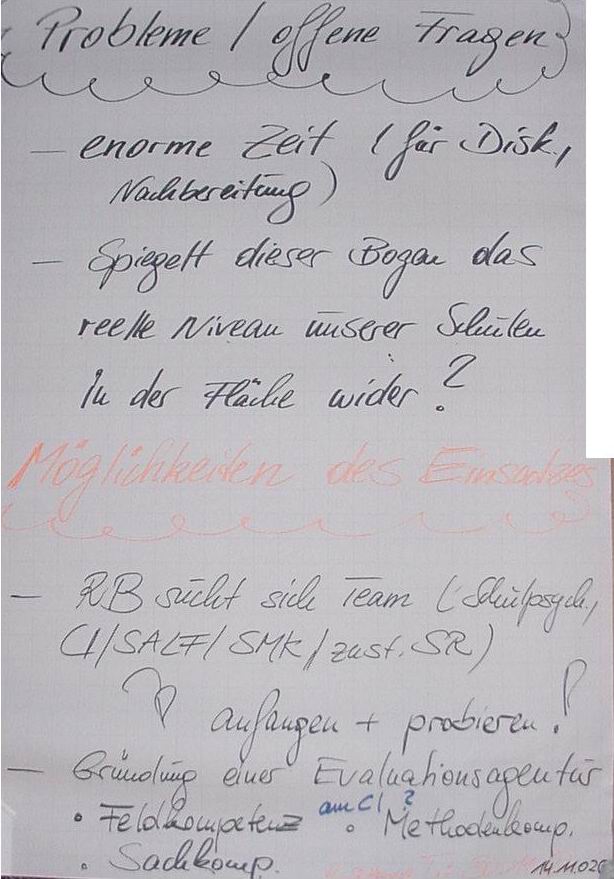 Probleme / offene Fragen
— enorme Zeit (für Disk.,
Nachbereitung)
— Spiegelt dieser Bogen das
reelle Niveau unserer Schulen
in der Fläche wider?
Möglichkeiten des Einsatzes
— RB sucht sich Team (Schulpsych.,
CI/SALF/SMK/zust. SR)
anfangen + probieren!
— Gründung einer Evaluationsagentur
am CI ?
• Feldkompetenz • Methodenkomp.
• Sachkomp.
14.11.02